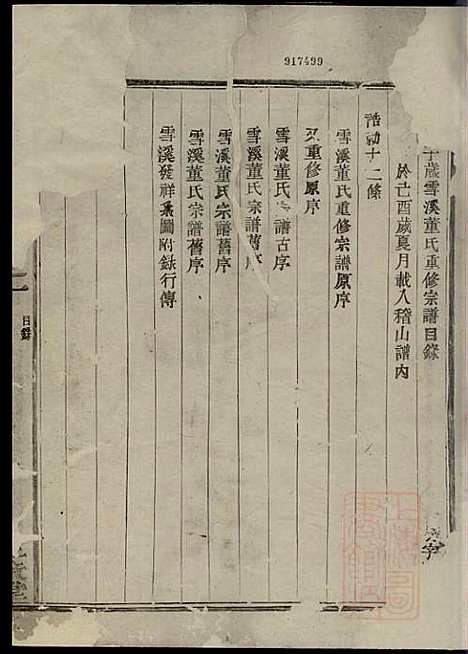 917499
歲雪溪董氏重修宗譜目錄
於己酉歲夏月載入稽山譜內
誥勅十二條
雪溪董氏重修宗譜原序
又重修原序
雪溪董氏譜古序
雪溪董氏宗譜舊序
雪溪董氏宗譜舊序
雪溪董氏宗譜舊序
雪溪發祥系圖附錄行傳
目錄